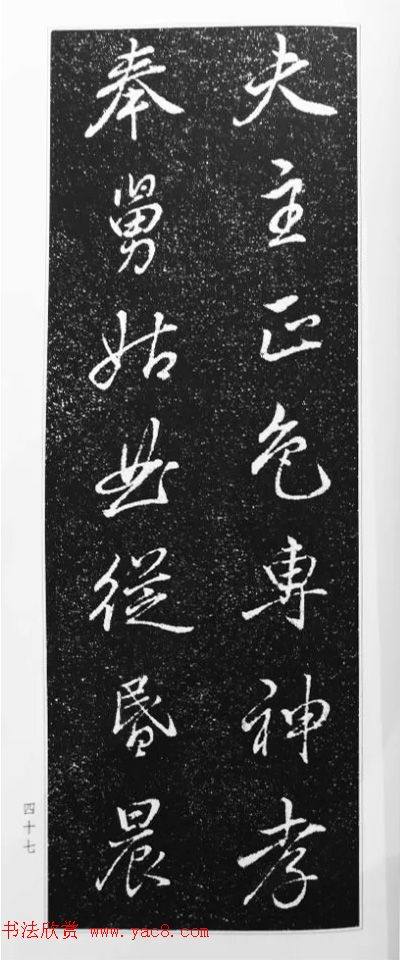 夫主正色專神孝
奉舅姑曲從昏晨
四十七
书法欣赏 www.yac8.com